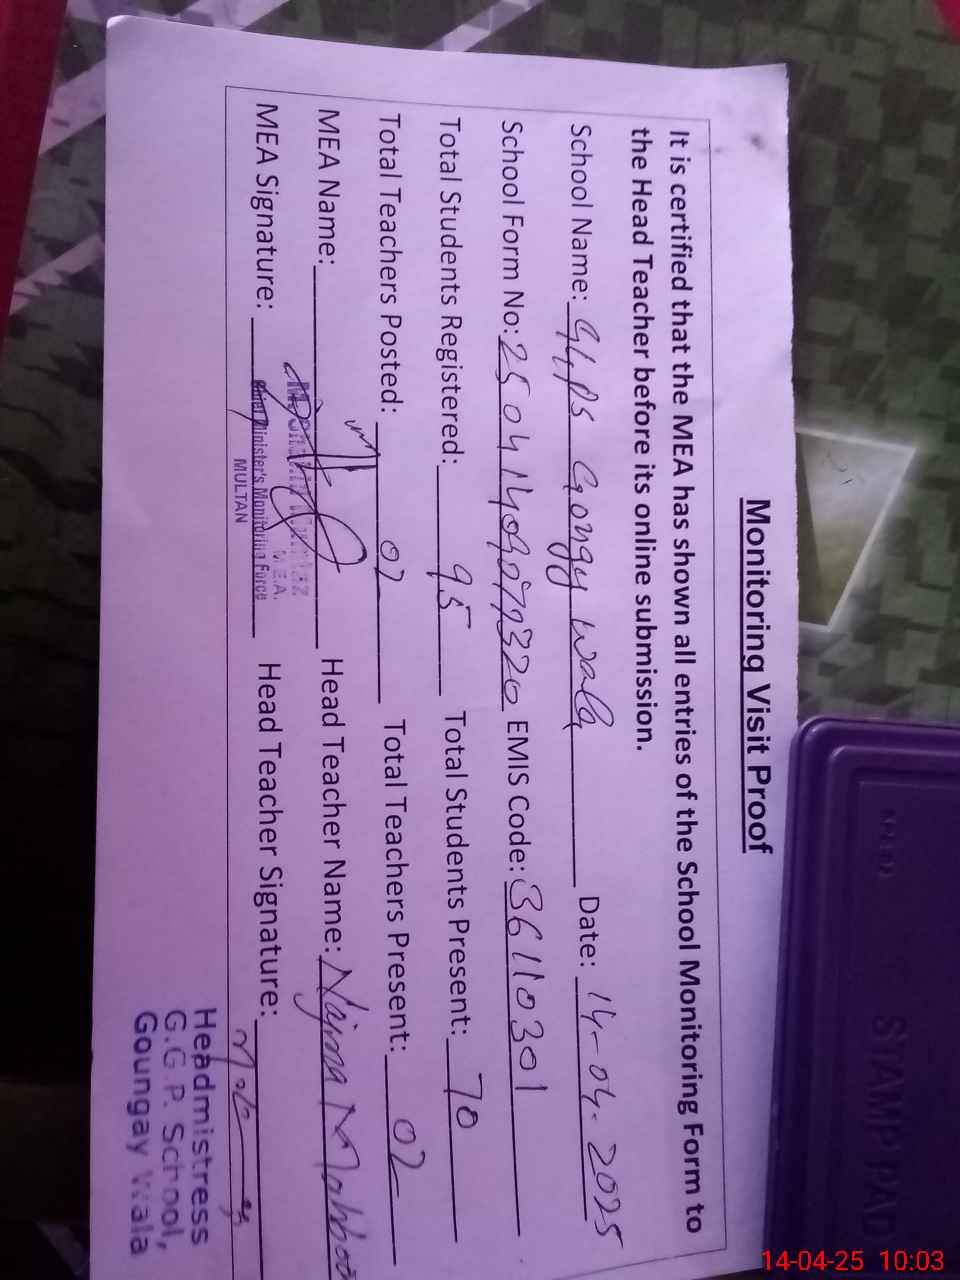 Monitoring Visit Proof
It is certified that the MEA has shown all entries of the School Monitoring Form to
the Head Teacher before its online submission.
School Name: GGPS Gongy wala Date: 14-04-2025
School Form No: EMIS Code: 36110301
Total Students Registered: 95 Total Students Present: 70
Total Teachers Posted: 02 Total Teachers Present: 02
MEA Name: Head Teacher Name: Najma Mahboo
MEA Signature: Head Teacher Signature:
M.E.A.
Chief Minister's Monitoring Force
MULTAN
Headmistress
G.G.P. School,
Goungay Wala
STAMP PAD
14-04-25 10:03